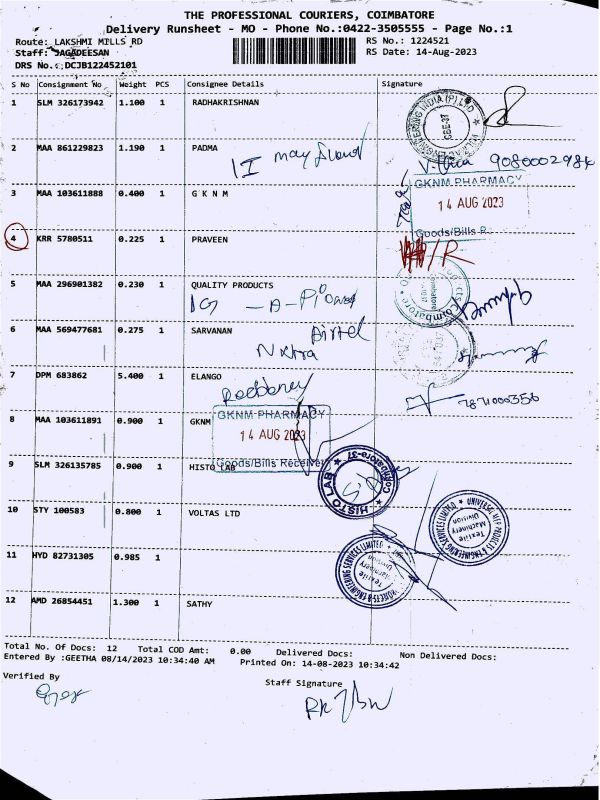 THE PROFESSIONAL COURIERS, COIMBATORE
Delivery Runsheet - MO - Phone No.:0422-3505555 - Page No.:1
Route: LAKSHMI MILLS RD RS No.: 1224521
Staff: JAGADEESAN RS Date: 14-Aug-2023
DRS No.:DCJB122452101
S No Consignment No Weight PCS Consignee Details Signature
1 SLM 326173942 1.100 1 RADHAKRISHNAN
2 MAA 861229823 1.190 1 PADMA
9080002984
3 MAA 103611888 0.400 1 G K N M
GKNM PHARMACY
14 AUG 2023
Goods/Bills R
4 KRR 5780511 0.225 1 PRAVEEN
5 MAA 296901382 0.230 1 QUALITY PRODUCTS
6 MAA 569477681 0.275 1 SARVANAN
Airtel
Nxtra
7 DPM 683862 5.400 1 ELANGO
8 MAA 103611891 0.900 1 GKNM
GKNM PHARMACY
14 AUG 2023
Goods/Bills Received
9 SLM 326135785 0.900 1 HISTO LAB
HISTO LAB ★ Coimbatore-37 ★
10 STY 100583 0.800 1 VOLTAS LTD
Textile
Machinery
Division
11 HYD 82731305 0.985 1
Textile
Machinery
Division
12 AMD 26854451 1.300 1 SATHY
Total No. Of Docs: 12 Total COD Amt: 0.00 Delivered Docs: Non Delivered Docs:
Entered By :GEETHA 08/14/2023 10:34:40 AM Printed On: 14-08-2023 10:34:42
Verified By
Staff Signature